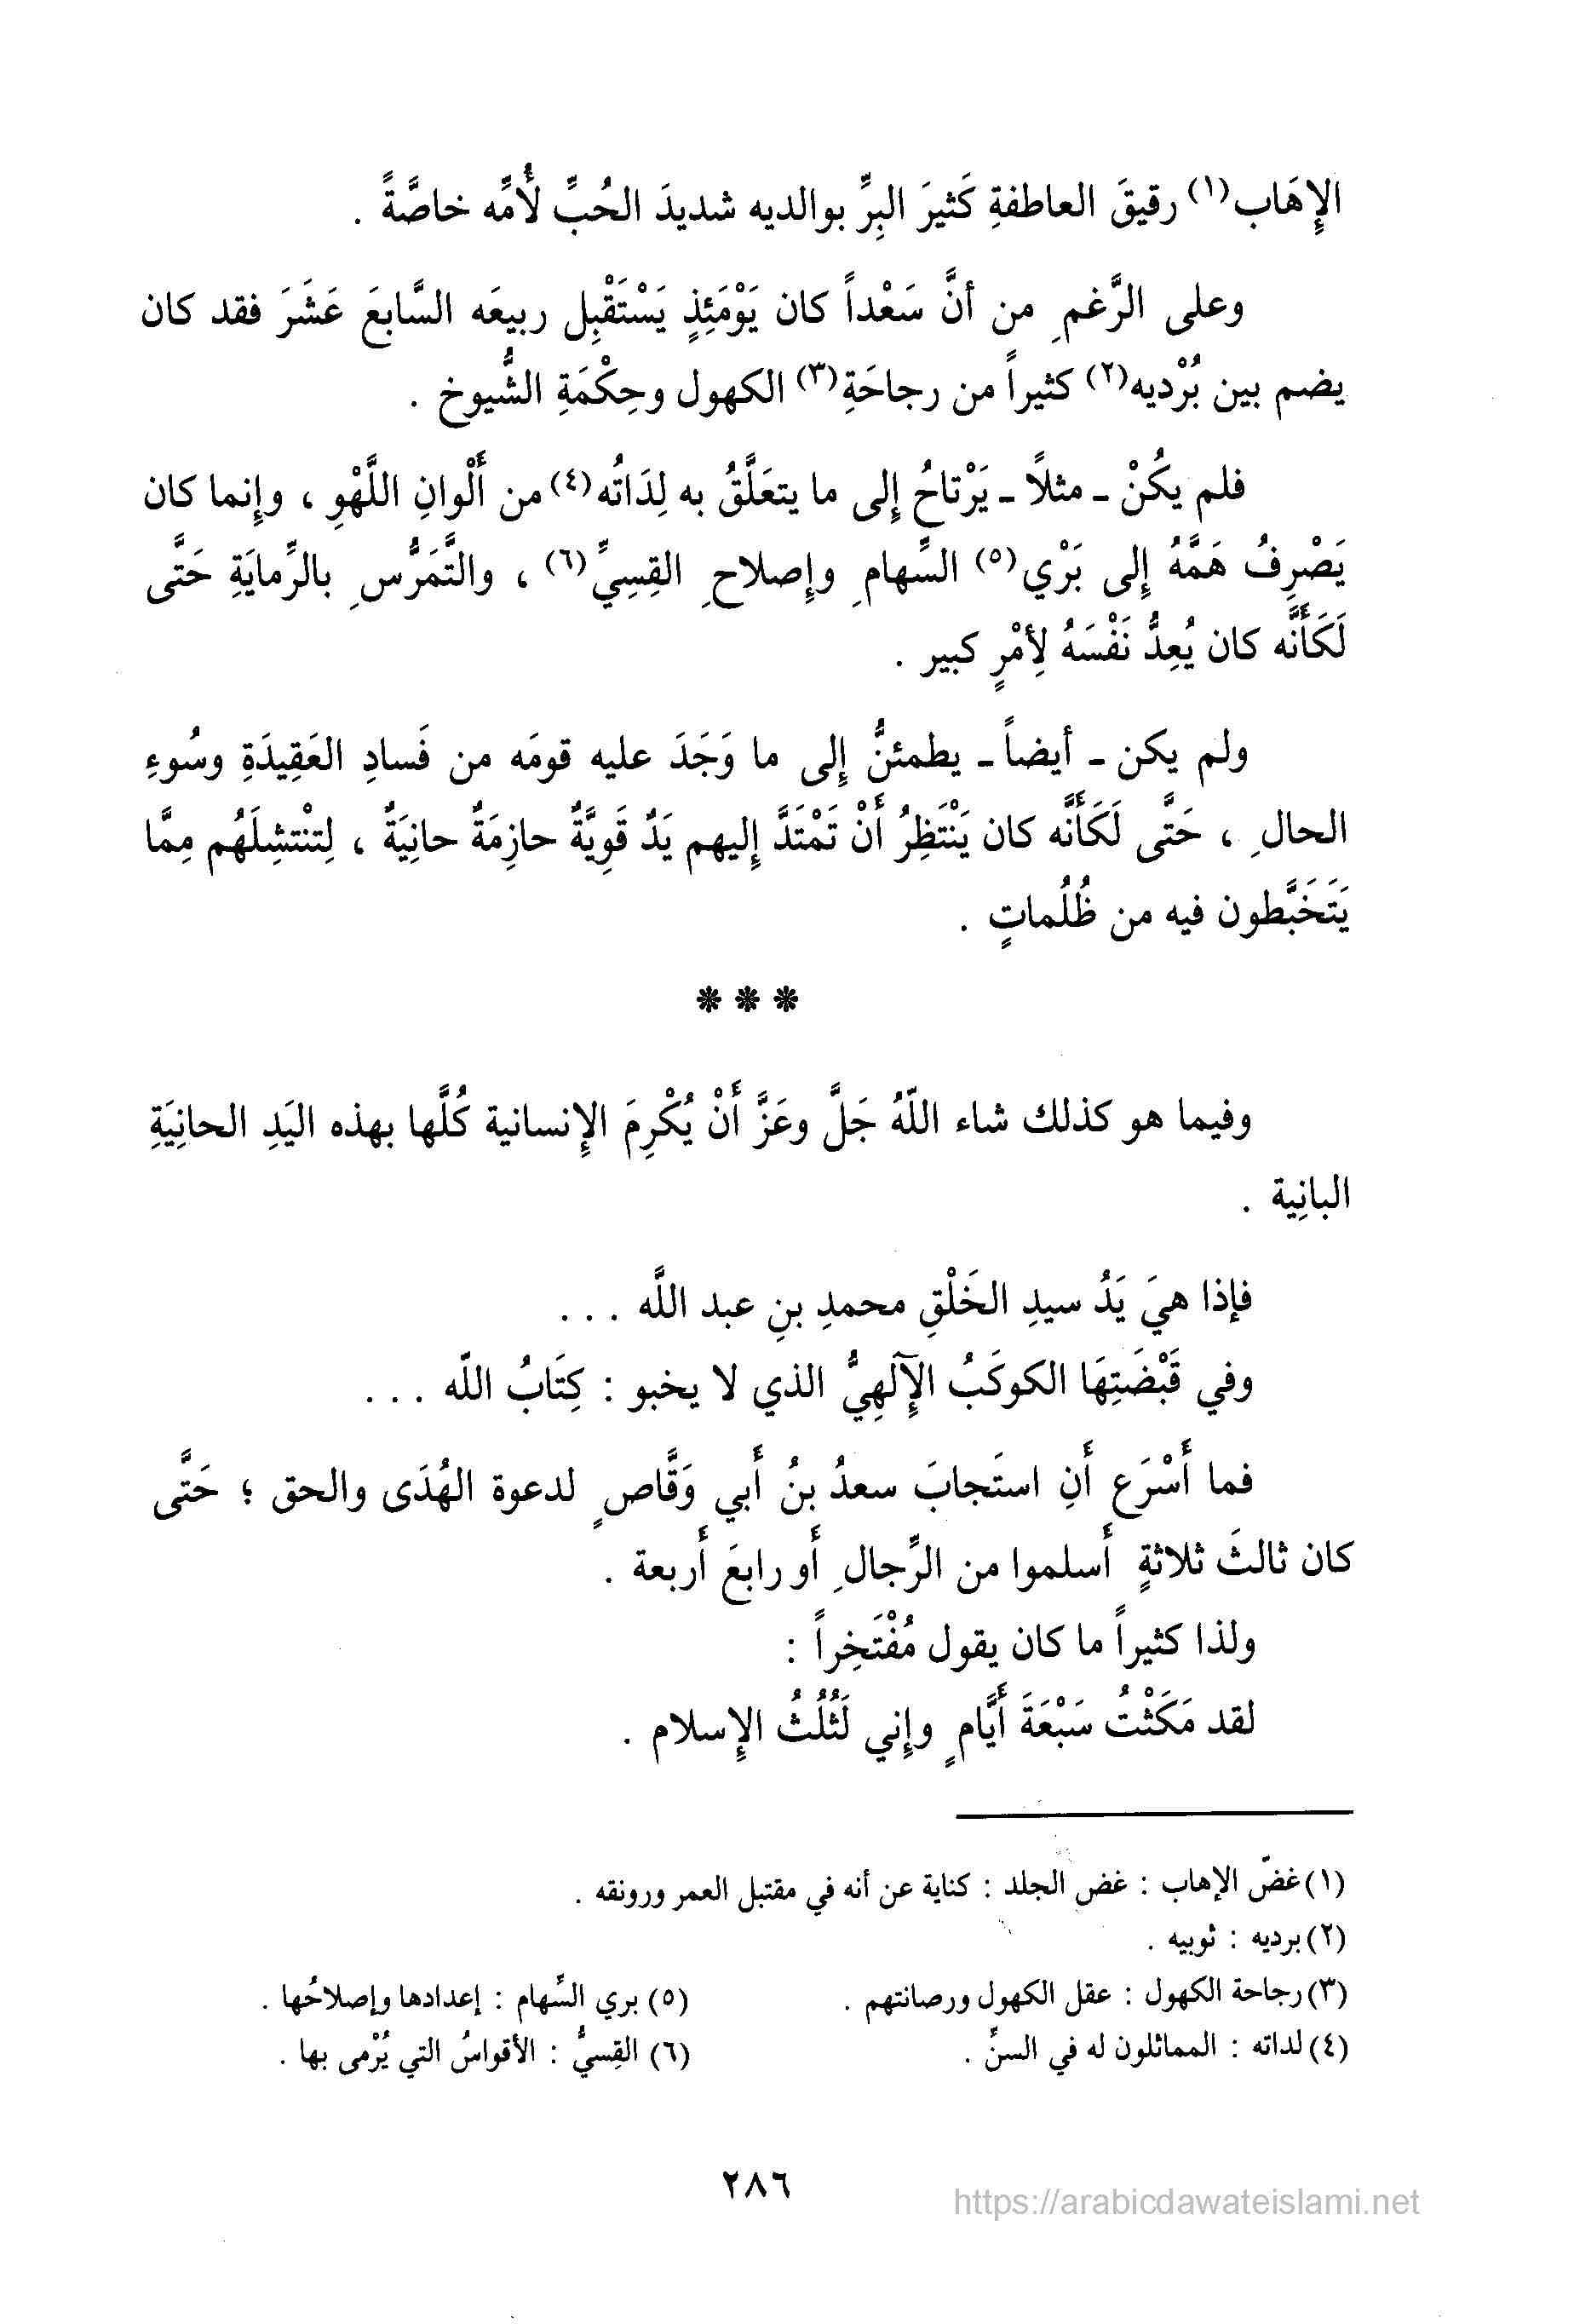 الإِهَاب(١) رقيقَ العاطفةِ كَثيرَ البِرِّ بوالديه شديدَ الحُبِّ لأُمِّه خاصَّةً .
وعلى الرَّغمِ من أنَّ سَعْداً كان يَوْمَئِذٍ يَسْتَقْبِل ربيعَه السَّابعَ عَشَرَ فقد كان
يضم بين بُرْديه(٢) كثيراً من رجاحَةِ(٣) الكهول وحِكْمَةِ الشُّيوخ .
فلم يكُنْ ـ مثلاً ـ يَرْتاحُ إِلى ما يتعَلَّقُ به لِدَاتُه(٤) من أَلْوانِ اللَّهْوِ ، وإِنما كان
يَصْرِفُ هَمَّهُ إِلى بَرْي(٥) السِّهامِ وإِصلاحِ القِسِيِّ(٦) ، والتَّمَرُّسِ بالرِّمايَةِ حَتَّى
لَكَأَنَّه كان يُعِدُّ نَفْسَهُ لِأَمْرٍ كبير .
ولم يكن ـ أيضاً ـ يطمئنُّ إِلى ما وَجَدَ عليه قومَه من فَسادِ العَقِيدَةِ وسُوءِ
الحالِ ، حَتَّى لَكَأَنَّه كان يَنْتَظِرُ أَنْ تَمْتَدَّ إِليهم يَدٌ قَوِيَّةٌ حازِمَةٌ حانِيَةٌ ، لِتنْتشِلَهُم مِمَّا
يَتَخَبَّطون فيه من ظُلُماتٍ .
* * *
وفيما هو كذلك شاء اللّهُ جَلَّ وعَزَّ أَنْ يُكْرِمَ الإِنسانية كُلَّها بهذه اليَدِ الحانِيَةِ
البانِية .
فإذا هيَ يَدُ سيدِ الخَلْقِ محمدِ بنِ عبد اللَّه . . .
وفي قَبْضَتِهَا الكوكَبُ الإِلٓهِيُّ الذي لا يخبو : كِتَابُ اللّه . . .
فما أَسْرَع أَنِ استَجابَ سعدُ بنُ أَبي وَقَّاصٍ لدعوة الهُدَى والحق ؛ حَتَّى
كان ثالثَ ثلاثةٍ أَسلموا من الرِّجالِ أَو رابعَ أَربعة .
ولذا كثيراً ما كان يقول مُفْتَخِراً :
لقد مَكَثْتُ سَبْعَةَ أَيَّامٍ وإِني لَثُلُثُ الإِسلام .
(١) غضّ الإهاب : غض الجلد : كناية عن أنه في مقتبل العمر ورونقه .
(٢) برديه : ثوبيه .
(٣) رجاحة الكهول : عقل الكهول ورصانتهم .
(٤) لداته : المماثلون له في السنِّ .
(٥) بري السِّهام : إعدادها وإصلاحُها .
(٦) القِسيُّ : الأقواسُ التي يُرْمى بها .
٢٨٦
https://arabicdawateislami.net